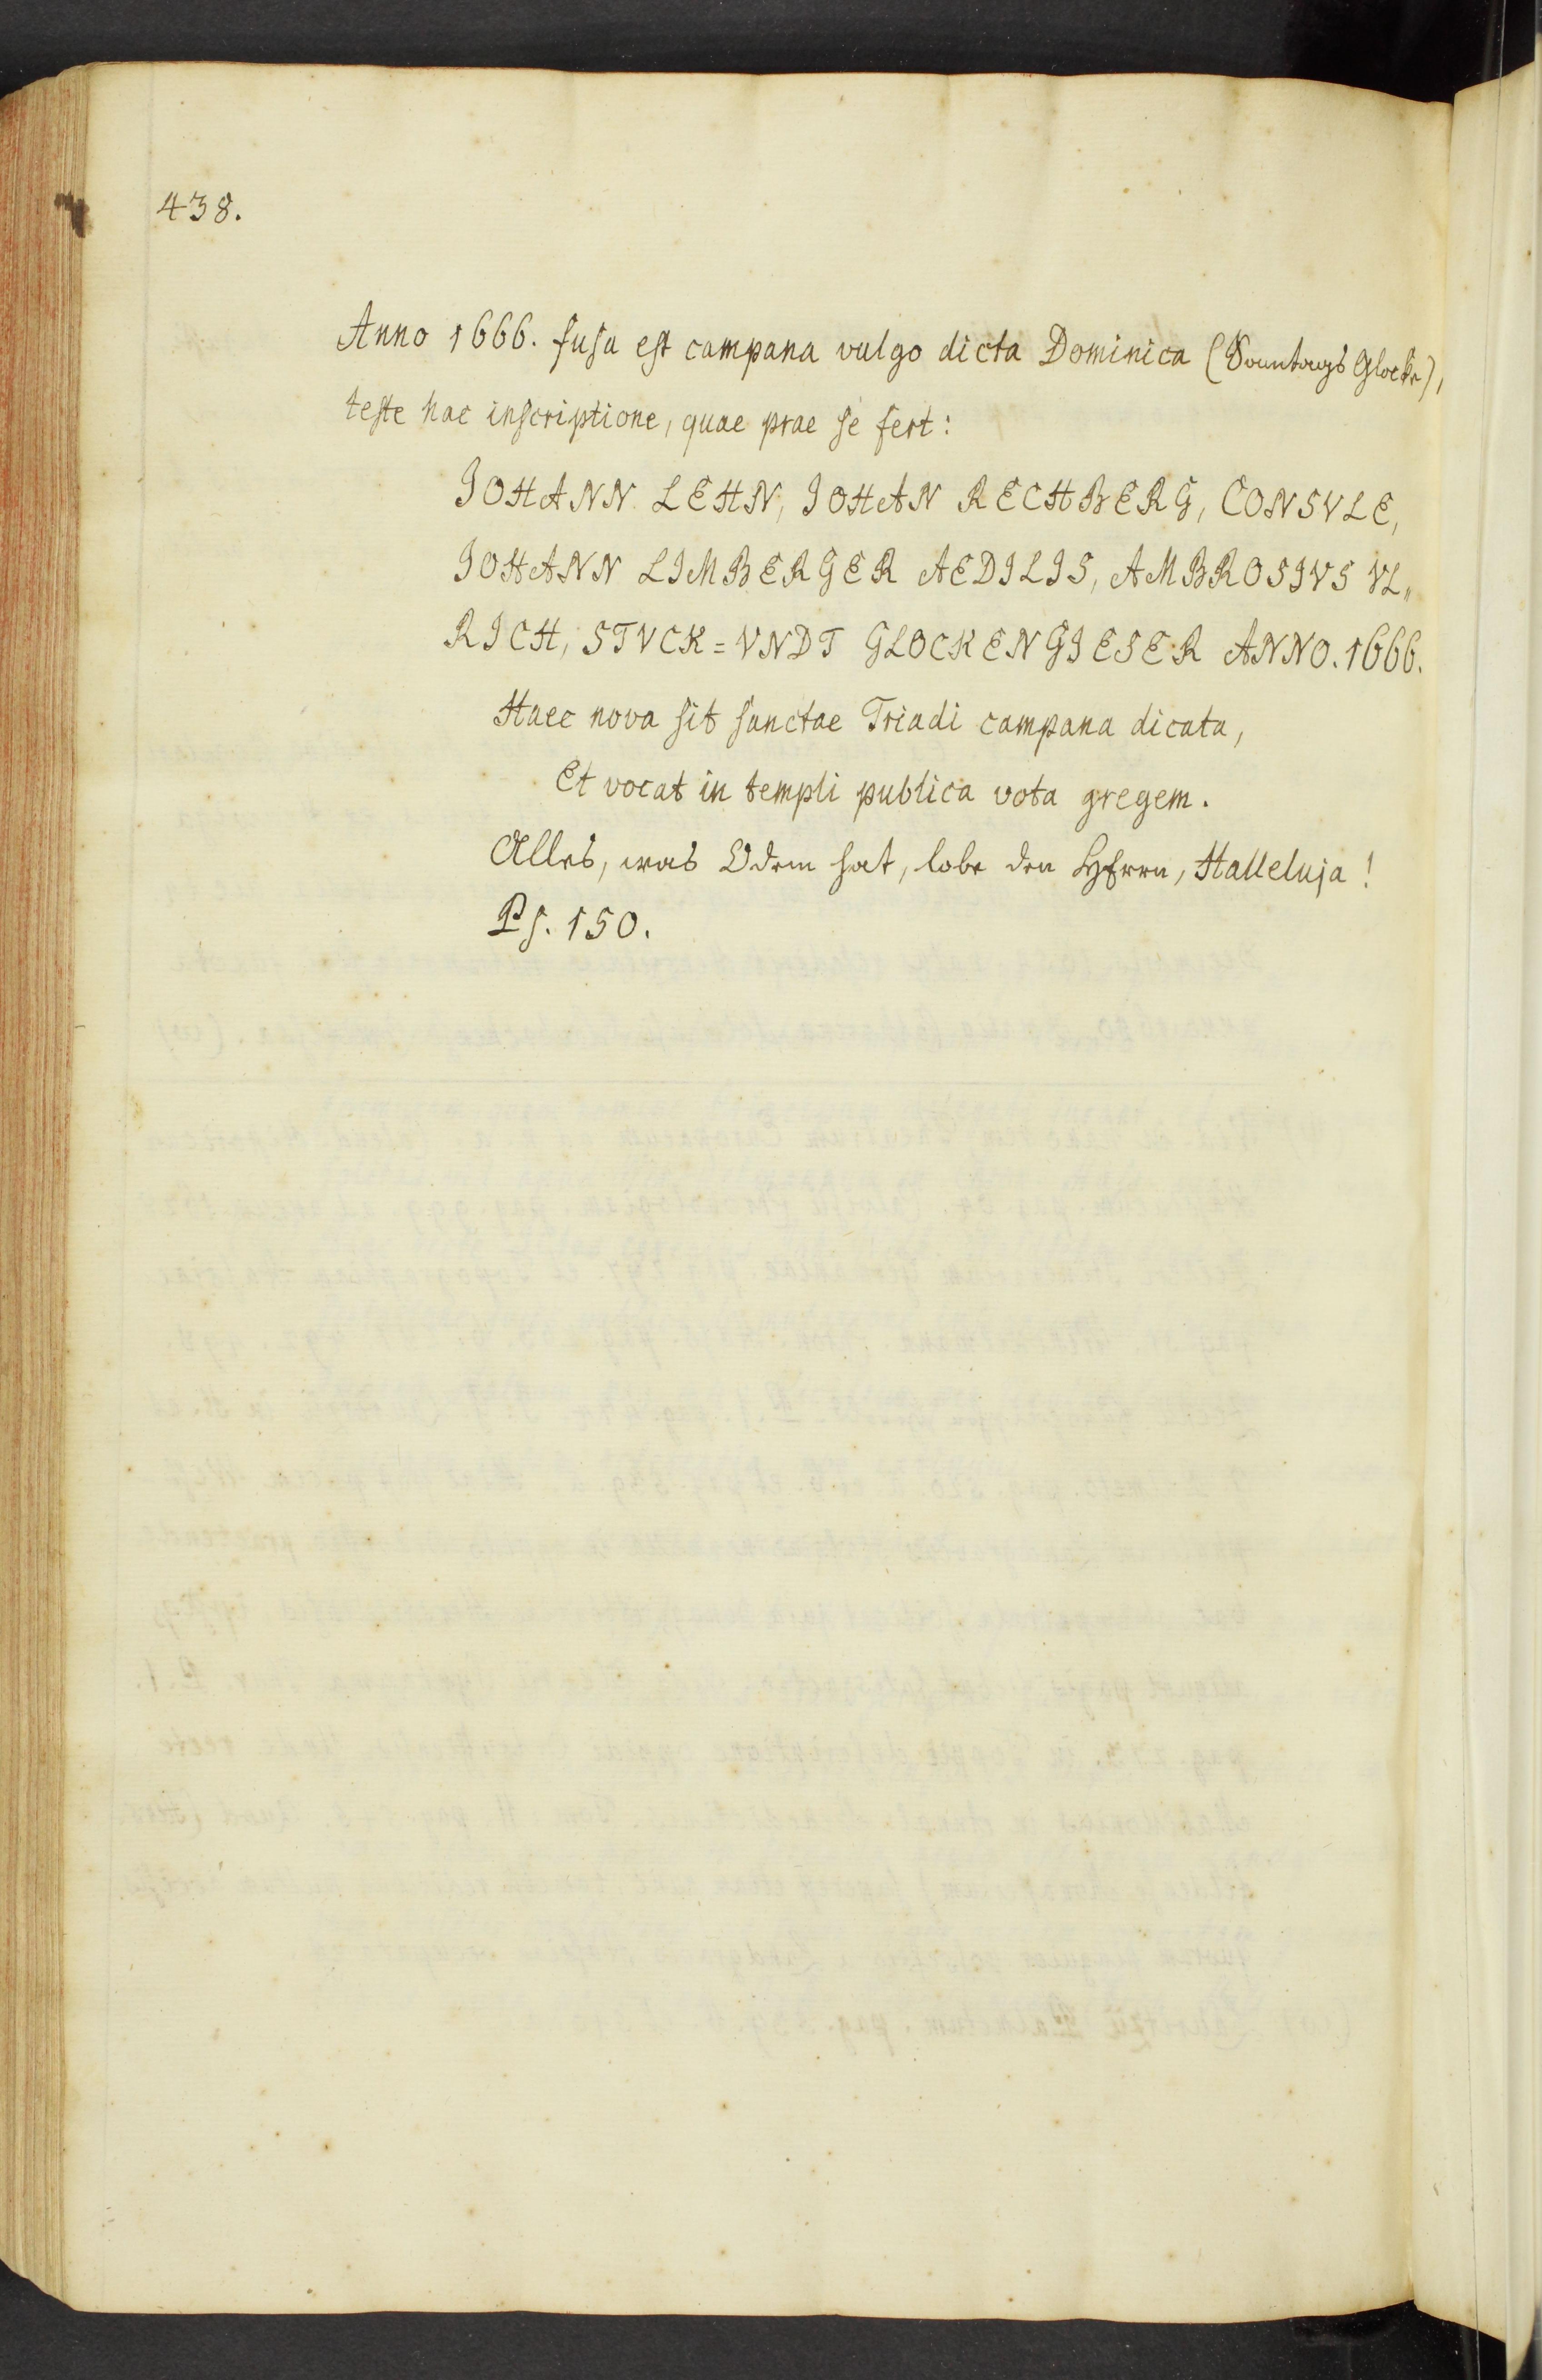 438.
Anno 1666. fusa est campana vulgo dicta Dominica (Sonntags Glocke),
teste hac inscriptione, quae prae se fert:
IOHANN LEHN, IOHAN RECHBERG, CONSVLE,
IOHANN LIMBERGER AEDILIS, AMBROSIVS VL„
RICH, STVCK=VNDT GLOCKENGIESER ANNO. 1666.
Haec nova sit sanctae Triadi campana dicata,
Et vocat in templi publica vota gregem.
Alles, was Odem hat, lobe den HErrn, Halleluja!
Ps. 150.